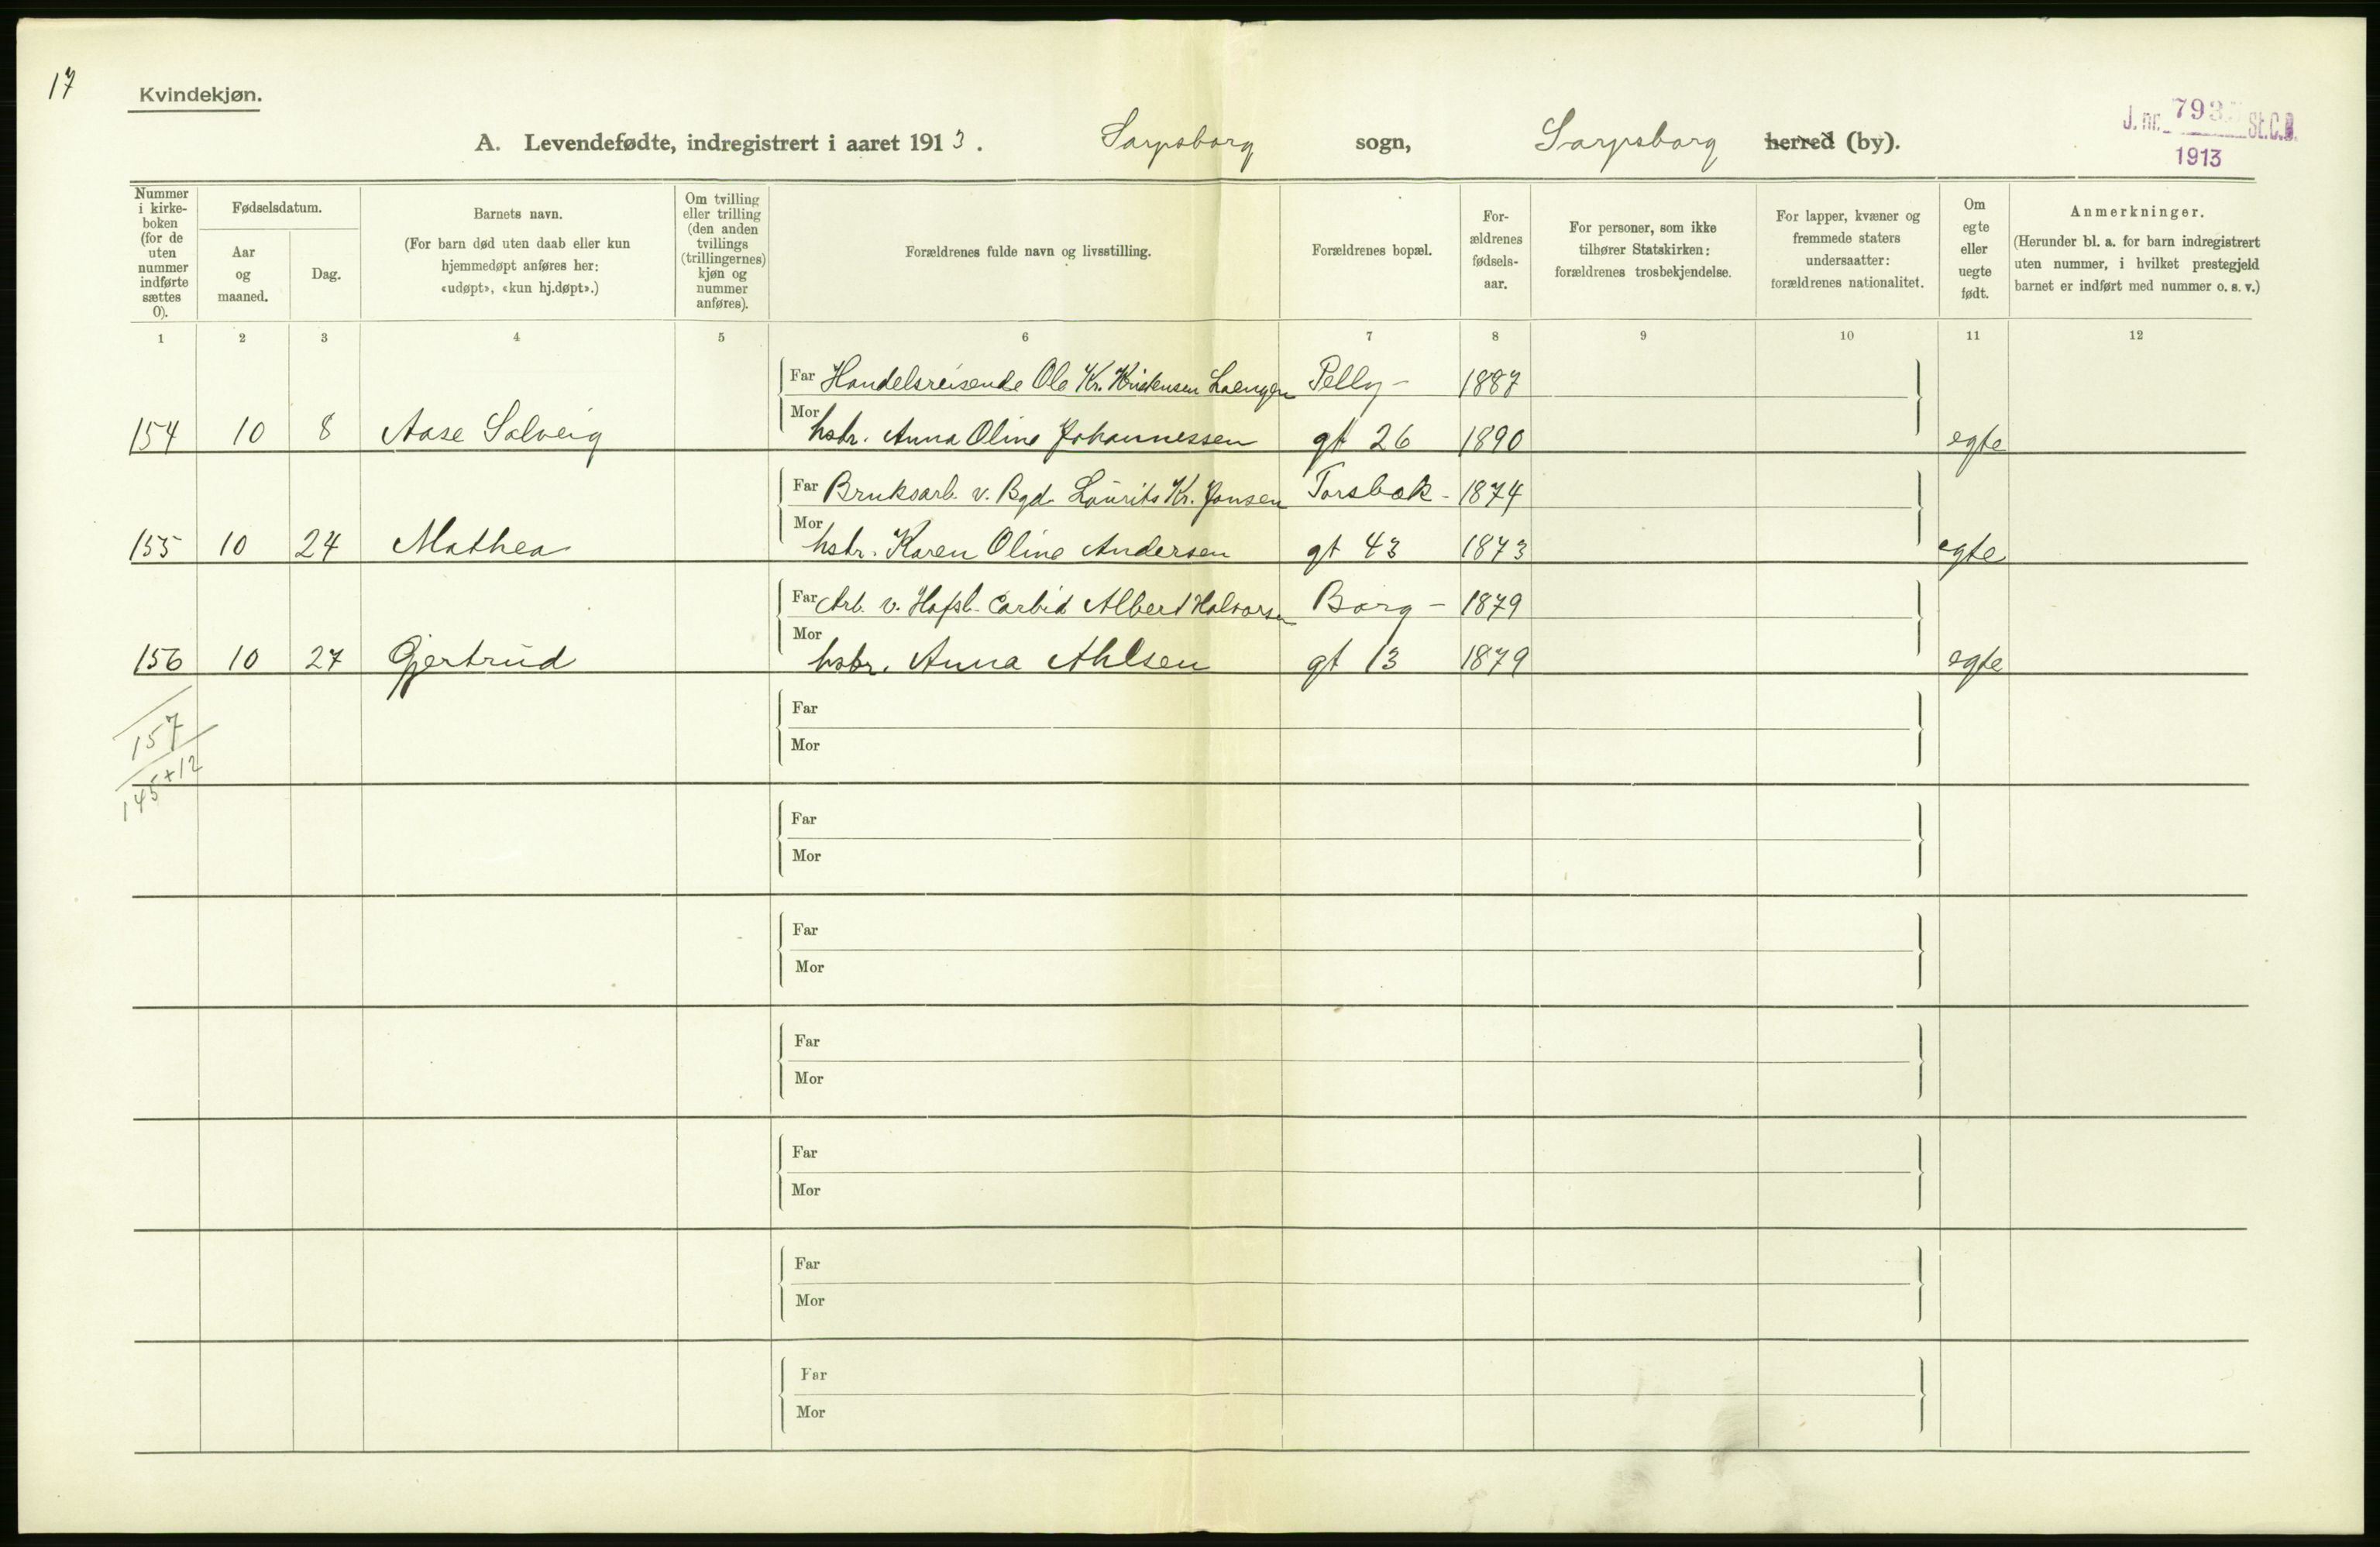 17
Kvindekjøn.
J. nr. 793 St.C.B.
1913
A. Levendefødte, indregistrert i aaret 1913. Sarpsborg sogn, Sarpsborg herred (by).
Nummer
i kirke-
boken
(for de
uten
nummer
indførte
sættes
0).
Fødselsdatum.
Aar
og
maaned.
Dag.
Barnets navn.
(For barn død uten daab eller kun
hjemmedøpt anføres her:
«udøpt», «kun hj.døpt».)
Om tvilling
eller trilling
(den anden
tvillings
(trillingernes)
kjøn og
nummer
anføres).
Forældrenes fulde navn og livsstilling.
Forældrenes bopæl.
For-
ældrenes
fødsels-
aar.
For personer, som ikke
tilhører Statskirken:
forældrenes trosbekjendelse.
For lapper, kvæner og
fremmede staters
undersaatter:
forældrenes nationalitet.
Om
egte
eller
uegte
født.
Anmerkninger.
(Herunder bl. a. for barn indregistrert
uten nummer, i hvilket prestegjeld
barnet er indført med nummer o. s. v.)
1 2 3 4 5 6 7 8 9 10 11 12
Far Handelsreisende Ole Kr. Kristensen Laengen Pelly- 1887
154 10 8 Aase Solveig Mor hstr. Anna Oline Johannessen gt 26 1890 egte
Far Bruksarb. v. Bgd. Laurits Kr. Jonsen Torsbæk- 1874
155 10 24 Mathea Mor hstr. Karen Oline Andersen gt 43 1873 egte
Far Arb. v. Hafsl. Carbid Albert Halvorsen Borg- 1879
156 10 27 Gjertrud Mor hstr. Anna Ahlsen gt 13 1879 egte
157
145+12
Far
Mor
Far
Mor
Far
Mor
Far
Mor
Far
Mor
Far
Mor
Far
Mor